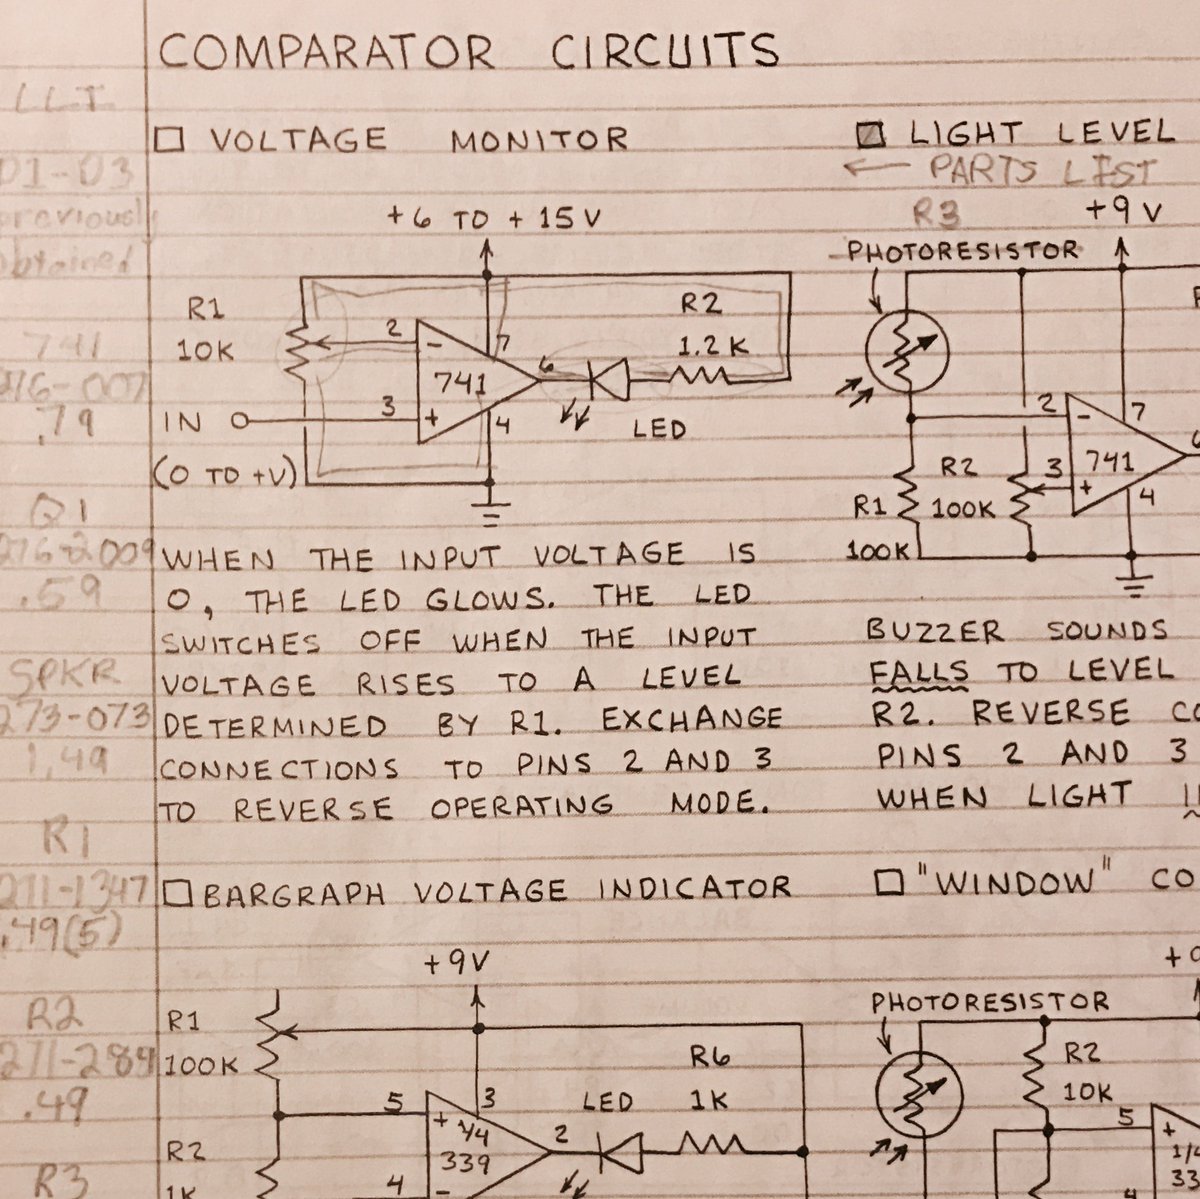 COMPARATOR CIRCUITS
LLT
01-03
previously
obtained
741
276-007
.79
Q1
276-2009
.59
SPKR
273-073
1.49
R1
271-1347
.49(5)
R2
271-284
.49
R3
VOLTAGE MONITOR
+6 TO +15V
R1
10K
2
-
7
741
6
R2
1.2K
LED
3
+
4
IN
(0 TO +V)
WHEN THE INPUT VOLTAGE IS
0, THE LED GLOWS. THE LED
SWITCHES OFF WHEN THE INPUT
VOLTAGE RISES TO A LEVEL
DETERMINED BY R1. EXCHANGE
CONNECTIONS TO PINS 2 AND 3
TO REVERSE OPERATING MODE.
LIGHT LEVEL
← PARTS LIST
R3
+9V
PHOTORESISTOR
2
-
7
741
3
+
4
R2
100K
R1
100K
BUZZER SOUNDS
FALLS TO LEVEL
R2. REVERSE CO
PINS 2 AND 3
WHEN LIGHT
BARGRAPH VOLTAGE INDICATOR
+9V
R1
100K
5
+
3
1/4
339
2
LED
R6
1K
R2
1K
4
-
"WINDOW" CO
PHOTORESISTOR
R2
10K
5
+
1/4
33
4